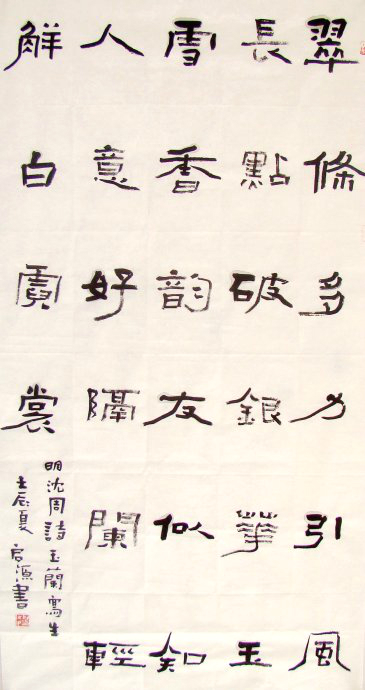 翠條多力引風
長點破銀華玉
雪香韵友似知
人意好隔闌輕
觧白霓裳
明沈周詩玉蘭寫生
壬辰夏启源書